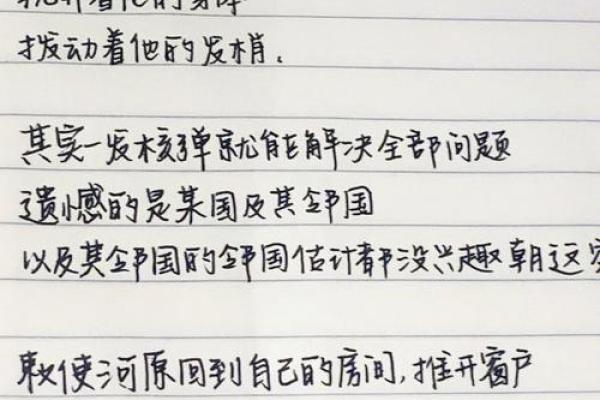 着他的
拨动着他的发梢。
其实一发核弹就能解决全部问题
遗憾的是某国及其邻国
以及其邻国的邻国估计都没兴趣朝这
敕使河原回到自己的房间,推开窗户